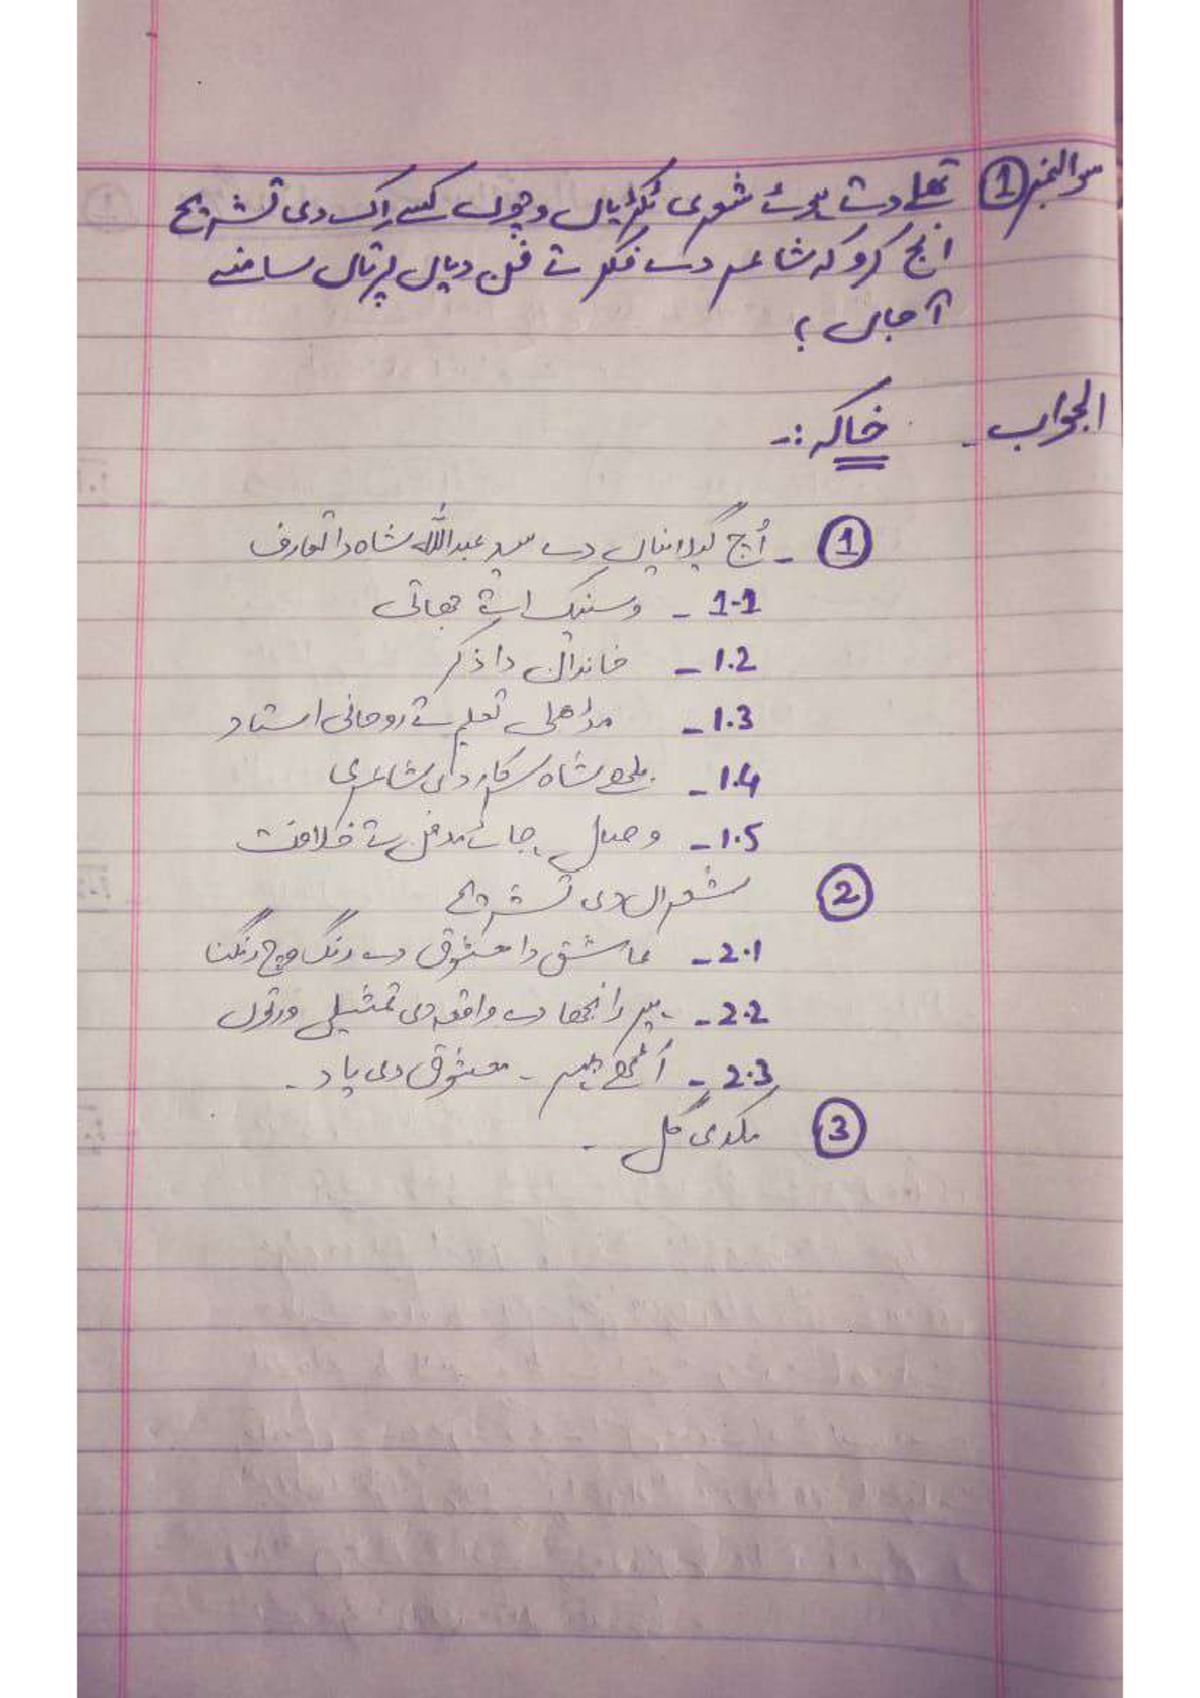 سوالنمبر 1 تھلے دتے ہوئے شعری ٹکڑیاں وچوں کسے اک دی تشریح
انج کرو کہ شاعر دے فکر تے فن دیاں پرتاں سامنے
آ جاں ؟
الجواب - خاکہ :-
1 - اُچ گیلانیاں دے سید عبداللہ شاہ دا تعارف
1-1 - وسنیک اتے جھاتی
1.2 - خاندان دا ذکر
1.3 - مڈھلی تعلیم تے روحانی استاد
1.4 - بلھے شاہ سرکار دی شاعری
1.5 - وصال، جائے مدفن تے خلافت
2 شعراں دی تشریح
2.1 - عاشق دا معشوق دے رنگ وچ رنگنا
2.2 - ہیر رانجھا دے واقعہ دی تمثیلی ورتوں
2.3 - معشوق دی یاد -
3 مکدی گل -